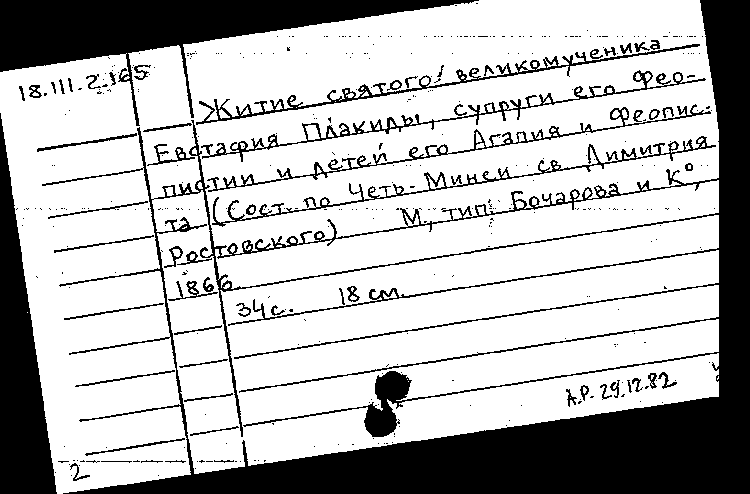 18.III.2.165
Житие святого великомученика
Евстафия Плакиды, супруги его Фео-
пистии и детей его Агапия и Феопис-
та (Сост. по Четь-Минеи св Димитрия
Ростовского) М., тип. Бочарова и К°,
1866.
34с. 18 см.
А.Р. 29.12.82
2